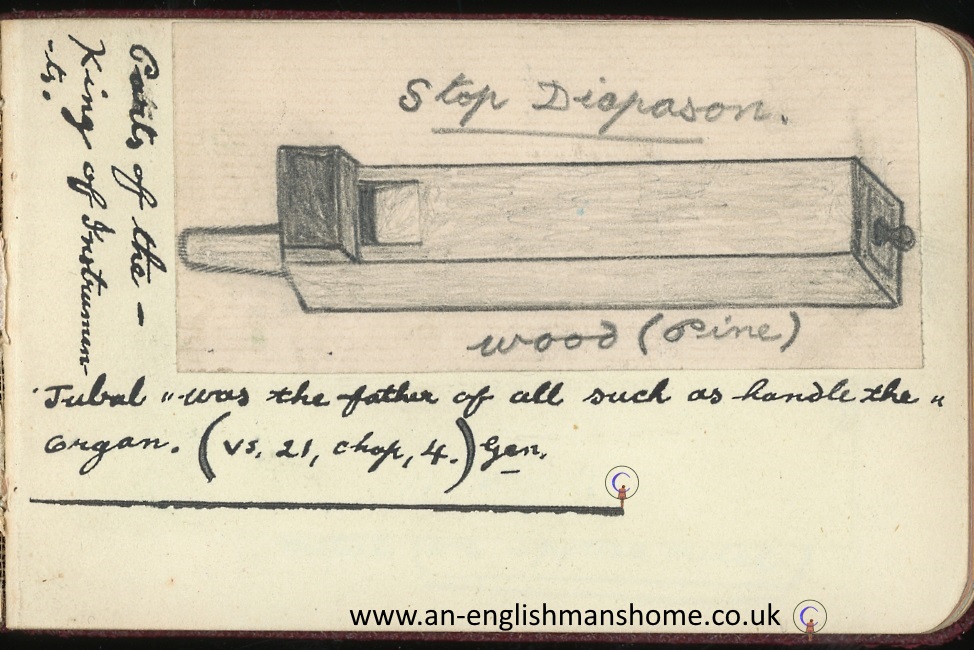 Parts of the -
King of Instrumen-
-ts.
Stop Diapason.
wood (Pine)
Jubal "was the father of all such as handle the "
organ. (Vs. 21, chap, 4.) Gen.
www.an-englishmanshome.co.uk